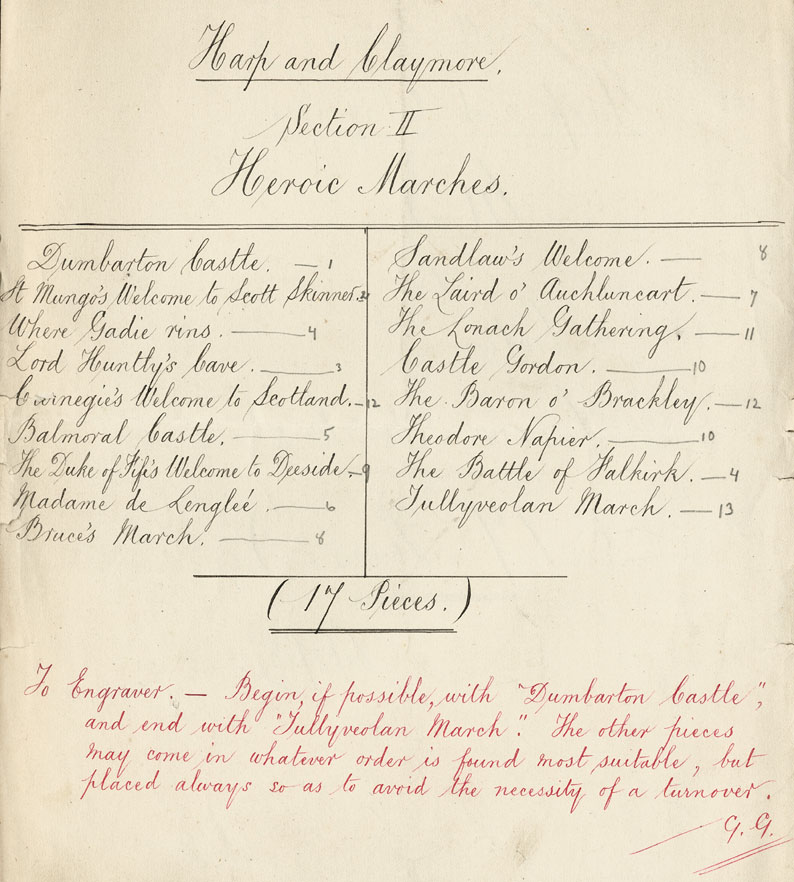 Harp and Claymore.
Section II
Heroic Marches.
Dumbarton Castle. — 1
St Mungo's Welcome to Scott Skinner.
Where Gadie rins. — 4
Lord Huntly's Cave. — 3
Carnegie's Welcome to Scotland. — 12
Balmoral Castle. — 5
The Duke of Fife's Welcome to Deeside. — 9
Madame de Lengleé. — 6
Bruce's March. — 8
Sandlaw's Welcome. — 8
The Laird o' Auchluncart. — 7
The Lonach Gathering. — 11
Castle Gordon. — 10
The Baron o' Brackley. — 12
Theodore Napier. — 10
The Battle of Falkirk. — 4
Tullyveolan March. — 13
(17 Pieces.)
To Engraver. — Begin, if possible, with "Dumbarton Castle",
and end with "Tullyveolan March". The other pieces
may come in whatever order is found most suitable, but
placed always so as to avoid the necessity of a turnover.
G. G.